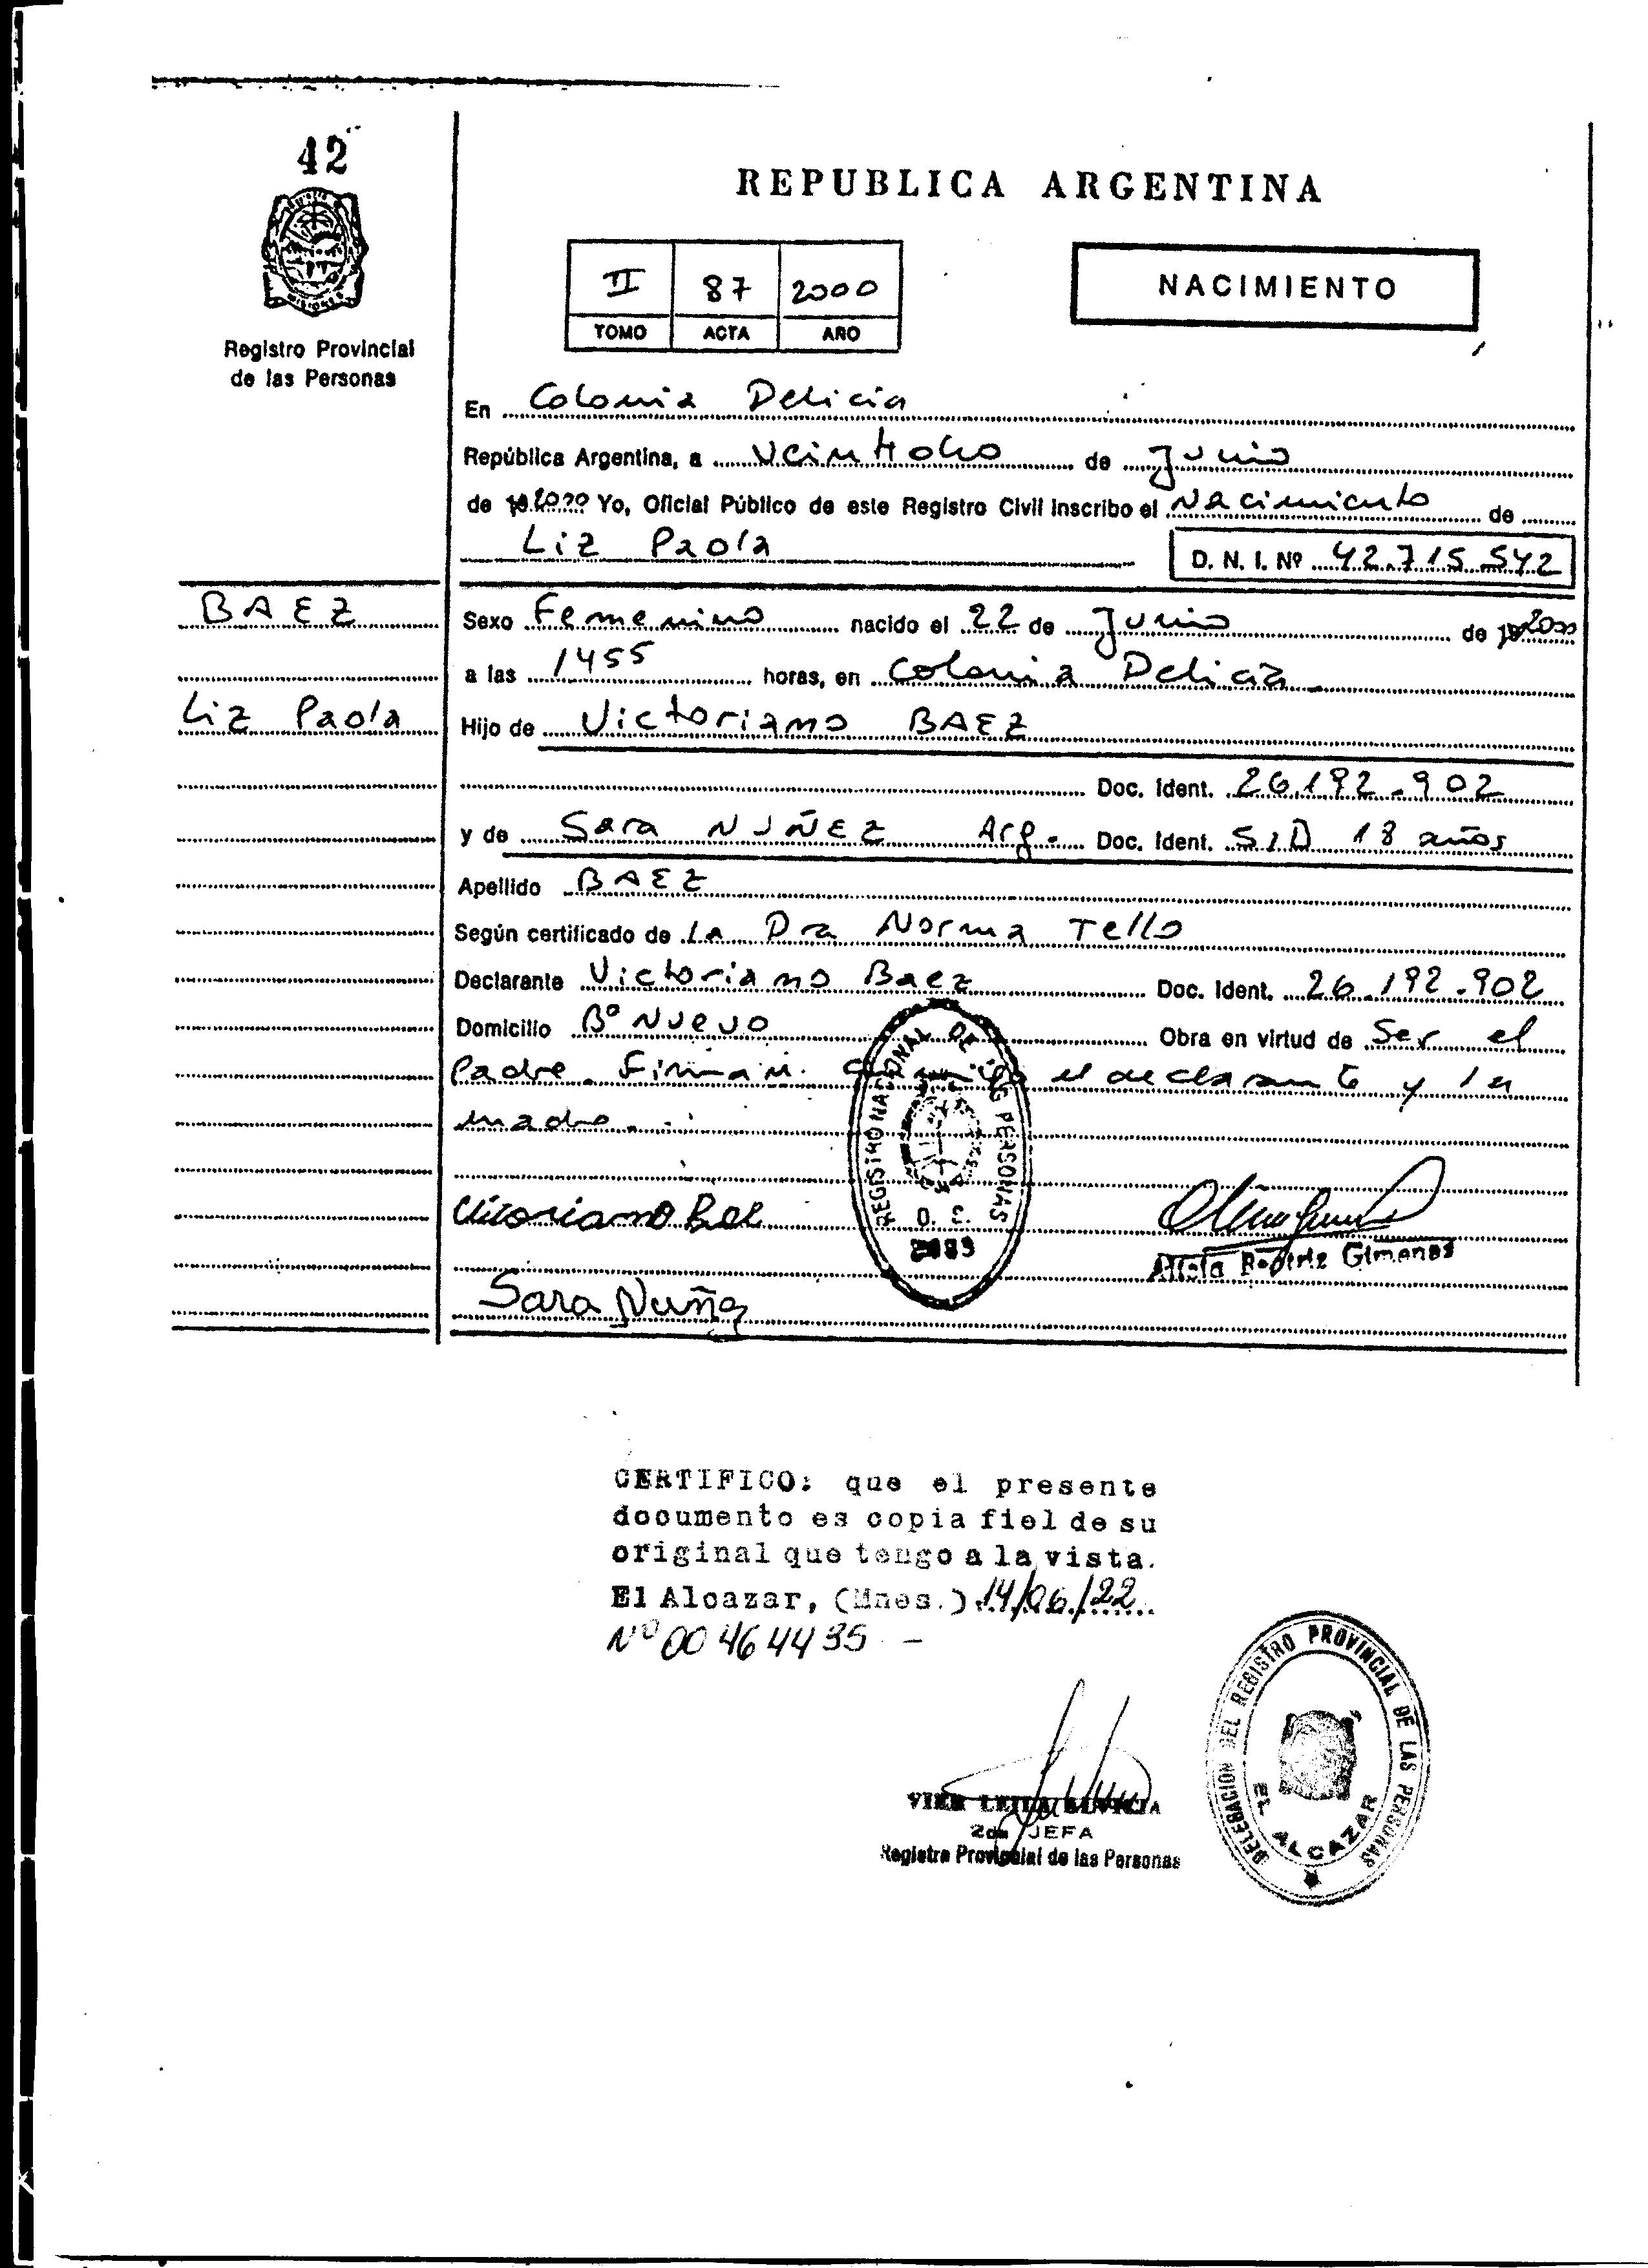 42
REPUBLICA ARGENTINA
II 87 2000
TOMO ACTA AÑO
NACIMIENTO
Registro Provincial
de las Personas
En Colonia Delicia
República Argentina, a Veintiocho de Junio
de 19 2000 Yo, Oficial Público de este Registro Civil inscribo el Nacimiento de
Liz Paola D. N. I. Nº 42.715.542
BAEZ
Sexo Femenino nacido el 22 de Junio de 19 2000
a las 1455 horas, en Colonia Delicia
Liz Paola
Hijo de Victoriano BAEZ
Doc. Ident. 26.192.902
y de Sara NUÑEZ Arg. Doc. Ident. S/D 18 años
Apellido BAEZ
Según certificado de La Dra Norma Tello
Declarante Victoriano Baez Doc. Ident. 26.192.902
Domicilio Bº Nuevo Obra en virtud de Ser el
Padre. Firman el declarante y la
madre.
REGISTRO NACIONAL DE PERSONAS
Sara Nuñez
Gimenas
CERTIFICO: que el presente
documento es copia fiel de su
original que tengo a la vista.
El Alcazar, (Mnes.) 14/06/22
Nº 00464435 -
2da JEFA
Registro Provincial de las Personas
DELEGACION DEL REGISTRO PROVINCIAL DE LAS PERSONAS
EL ALCAZAR